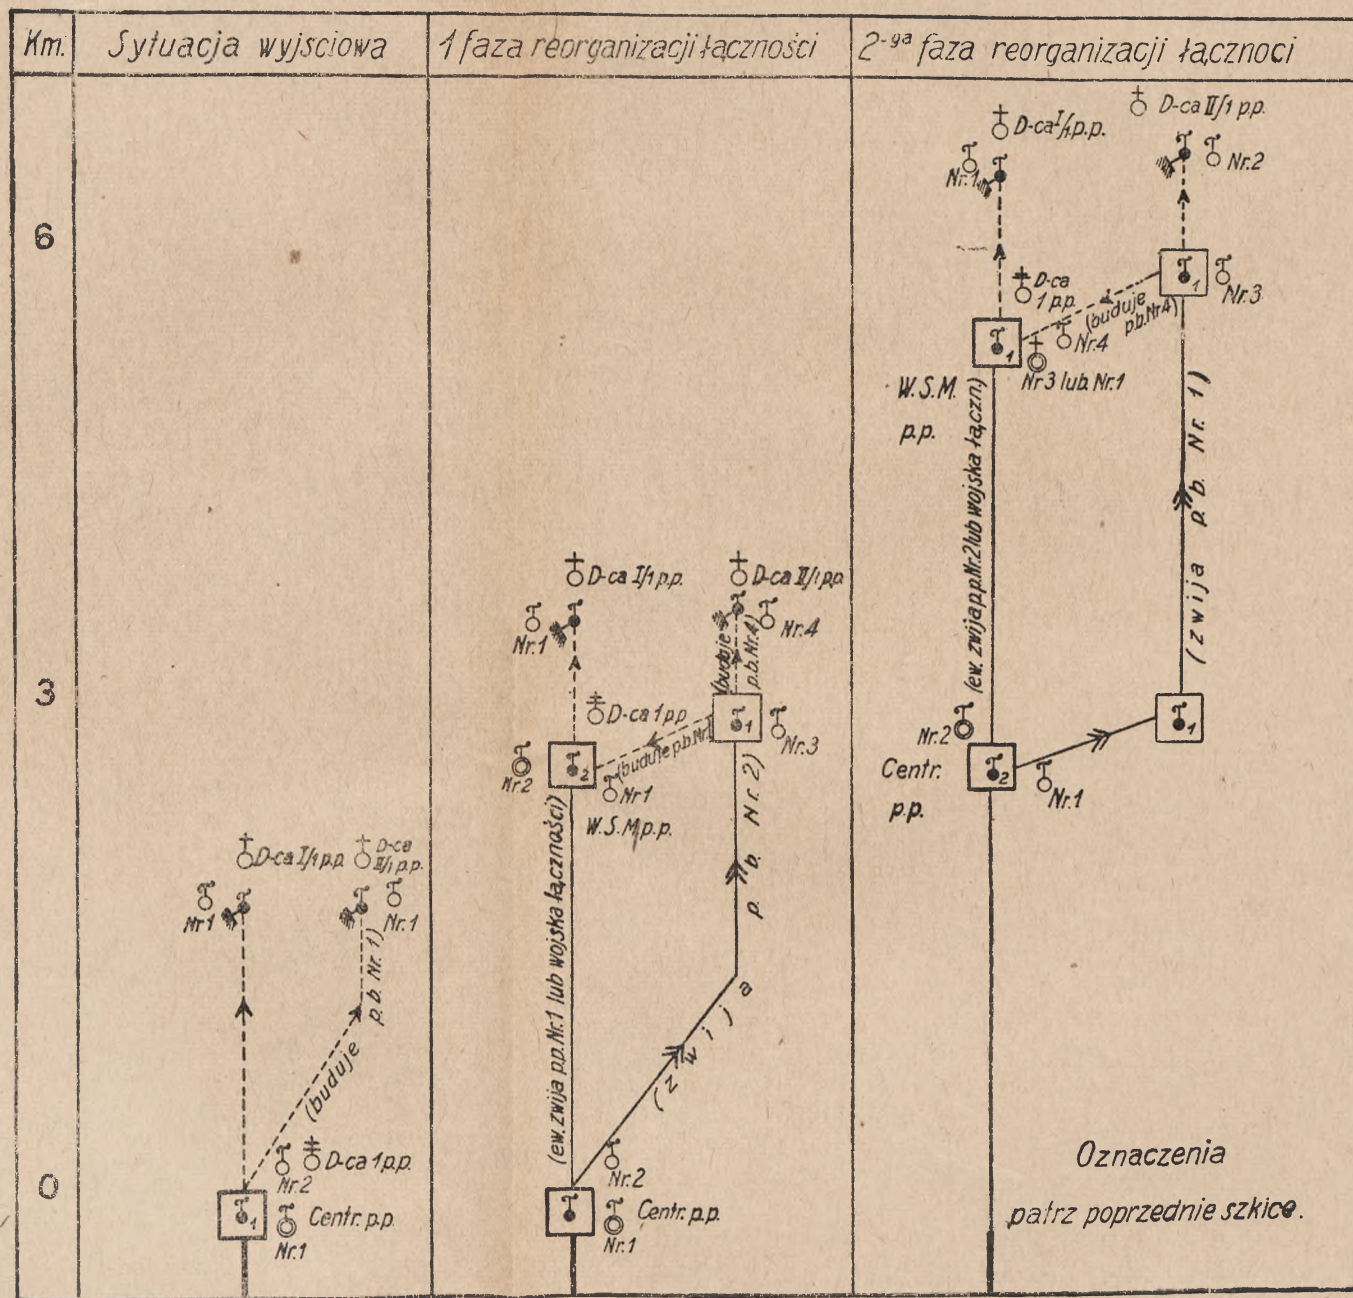 Km.
Sytuacja wyjsciowa
1 faza reorganizacji łączności
2-ga faza reorganizacji łącznoci
6
3
0
D-ca I/1 p.p.
D-ca
II/1 p.p.
Nr1
Nr.1
(buduje
p.b. Nr. 1)
Nr.2
D-ca 1p.p.
1
Centr. p.p.
Nr.1
D-ca I/1 p.p.
D-ca II/1 p.p.
Nr.1
Nr.4
(buduje
p.b. Nr.4)
D-ca 1 p.p.
1
Nr.3
(buduje p.b. Nr.1
2
Nr2
Nr1
W.S.M p.p.
(ew. zwija p.p. Nr.1 lub wojska łączności)
(zwija
p. b. Nr. 2)
Nr.2
Centr. p.p.
Nr.1
D-ca I/1 p.p.
D-ca II/1 p.p.
Nr.1
Nr.2
D-ca
1 p.p.
1
Nr.3
(buduje
p.b. Nr4)
1
Nr.4
Nr3 lub Nr.1
W.S.M.
p.p.
(ew. zwija p.p. Nr.2 lub wojska łączn.)
(zwija p. b. Nr. 1)
1
Nr.2
Centr.
p.p.
2
Nr.1
Oznaczenia
patrz poprzednie szkice.